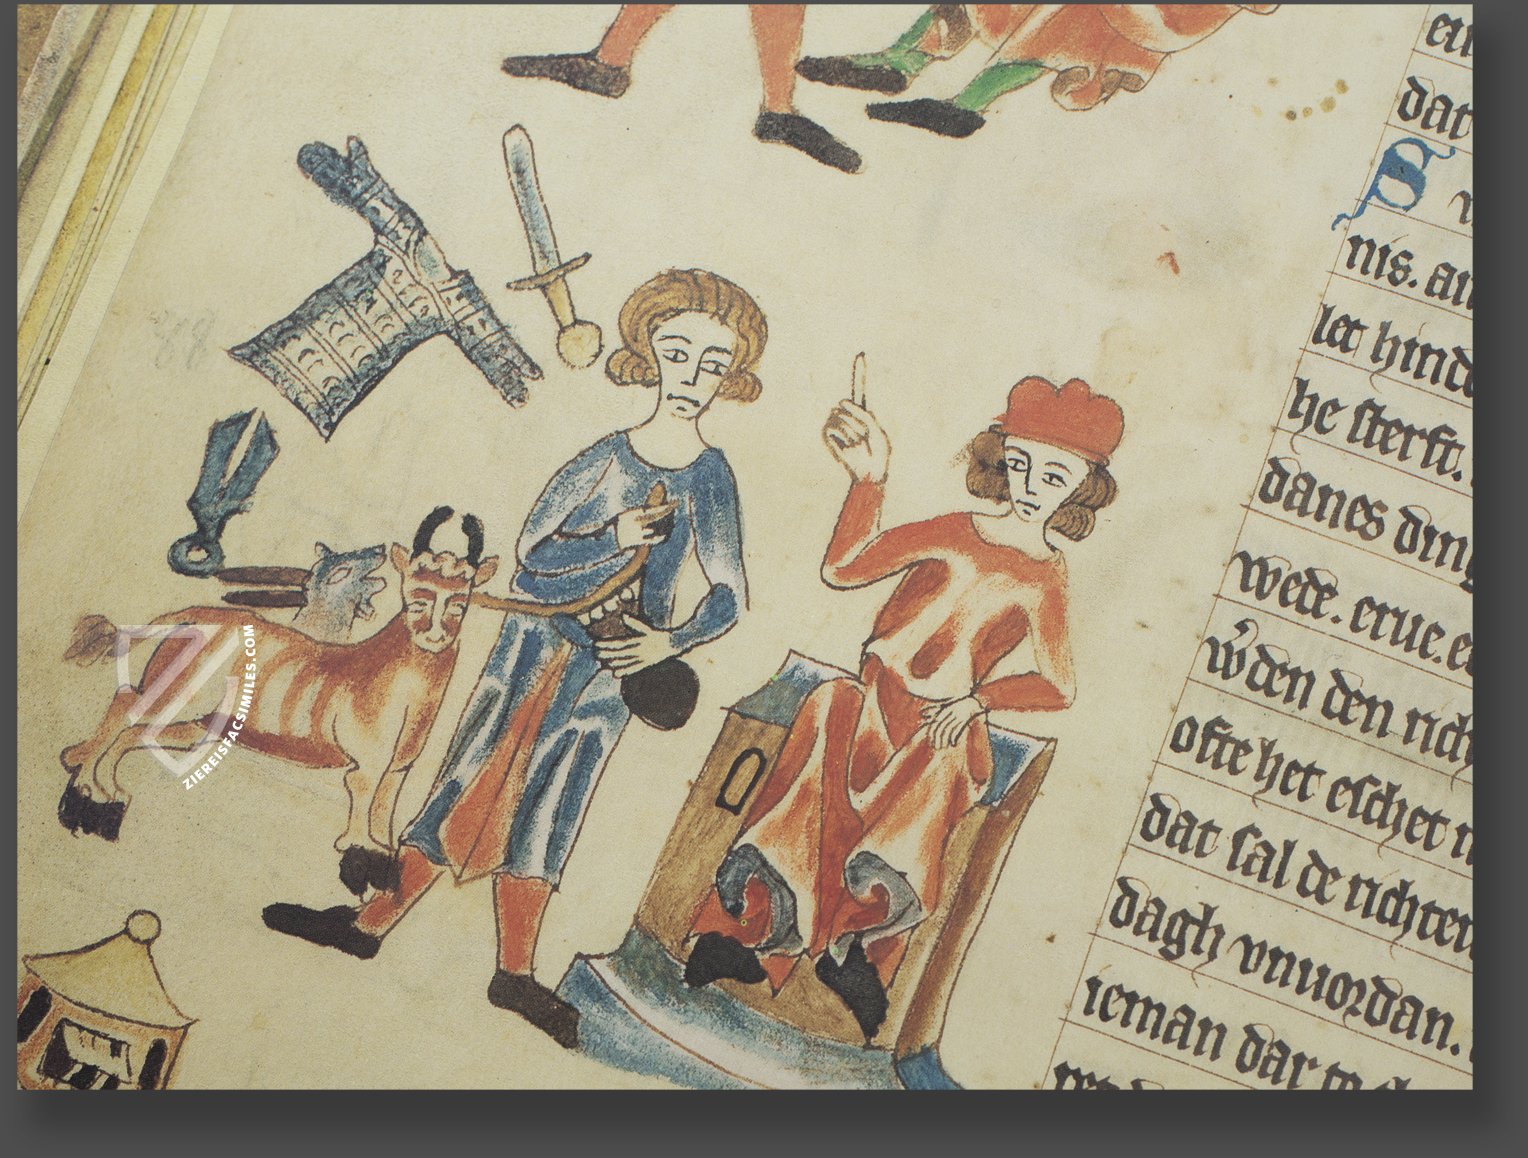 dat
S
nis. an
let hind
he ſterft.
danes ding
wede. erue. e
wͦden den rich
ofte het eſchet n
dat ſal de richter
dagh vnuordan.
ieman dar to
ZIEREISFACSIMILES.COM